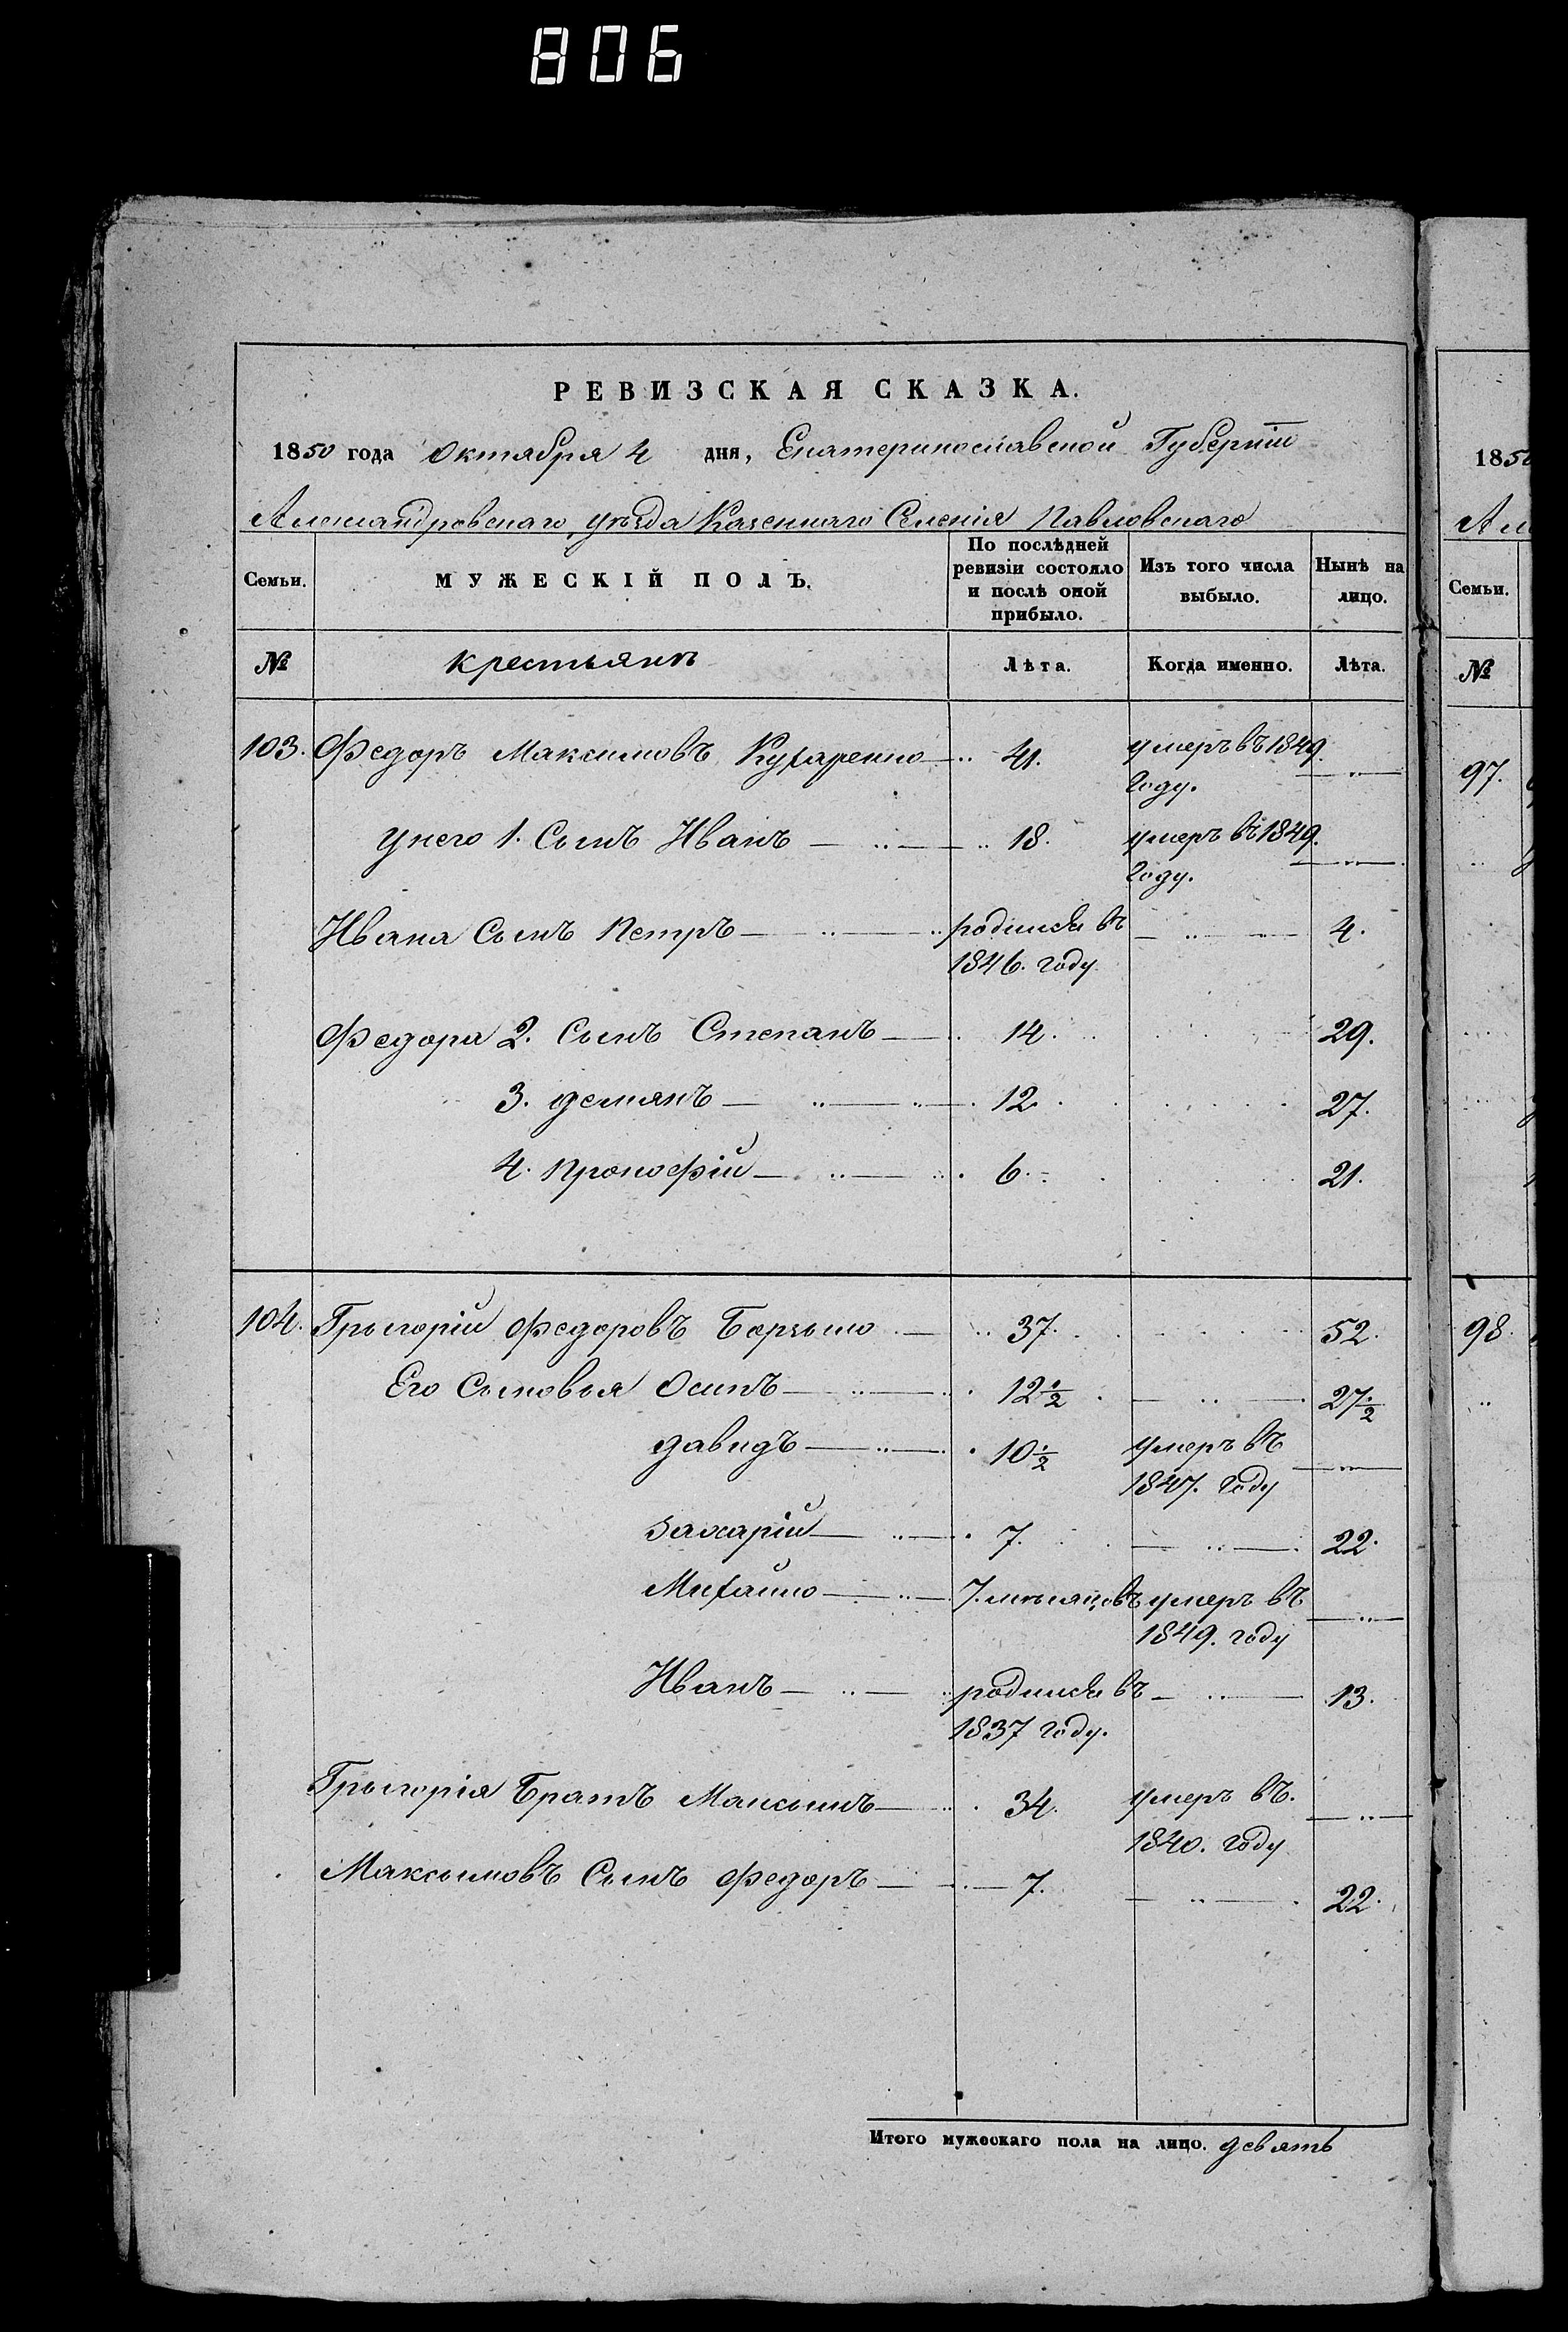 806
РЕВИЗСКАЯ СКАЗКА.
1850 года Октября 4 дня, Екатеринославской Губерніи
Александровскаго уѣзда Казеннаго Селенія Павловскаго
Семьи. МУЖЕСКІЙ ПОЛЪ. По послѣдней ревизіи состояло и послѣ оной прибыло. Изъ того числа выбыло. Нынѣ на лицо.
№ крестьянъ Лѣта. Когда именно. Лѣта.
103. Федоръ Максимовъ Кухаренко 41. умеръ въ 1849.
году.
у него 1. Сынъ Иванъ 18. умеръ въ 1849.
году.
Ивана Сынъ Петръ родился въ 4.
1846. году
Федора 2. Сынъ Степанъ 14. 29.
3. демянъ 12. 27.
4. Прокофій 6. 21.
104. Грыгорій Федоровъ 37. 52.
Его Сыновья Осипъ 12 1/2 27 1/2
давидъ 10 1/2 умеръ въ
1847. году
захарій 7. 22.
Михайло 7. мѣсяцовъ умеръ въ
1849. году
Иванъ родился въ 13.
1837 году.
Грыгорія Братъ Максымъ 34. умеръ въ.
1840. году
Максымовъ Сынъ Федоръ 7. 22.
Итого мужескаго пола на лицо. девять
1850
Семьи.
№
97.
98.